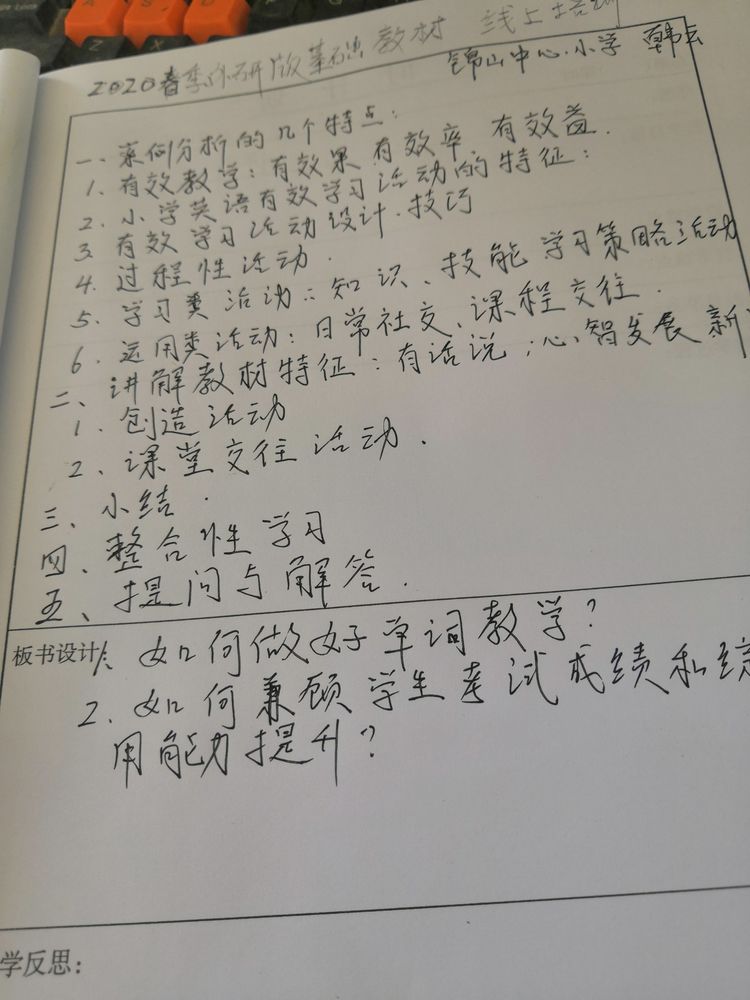 2020春季外研版基础教材 线上培训
锦山中心小学 韩云
一、案例分析的几个特点:
1. 有效教学:有效果 有效率 有效益.
2. 小学英语有效学习活动的特征:
3. 有效学习活动设计.技巧
4. 过程性活动.
5. 学习类活动:知识、技能 学习策略活动
6. 运用类活动:日常社交、课程交往.
二、讲解教材特征:有话说,心智发展 新
1. 创造活动
2. 课堂交往活动.
三、小结.
四、整合性学习
五、提问与解答.
板书设计 1. 如何做好单词教学?
2. 如何兼顾学生考试成绩和综
用能力提升?
学反思: